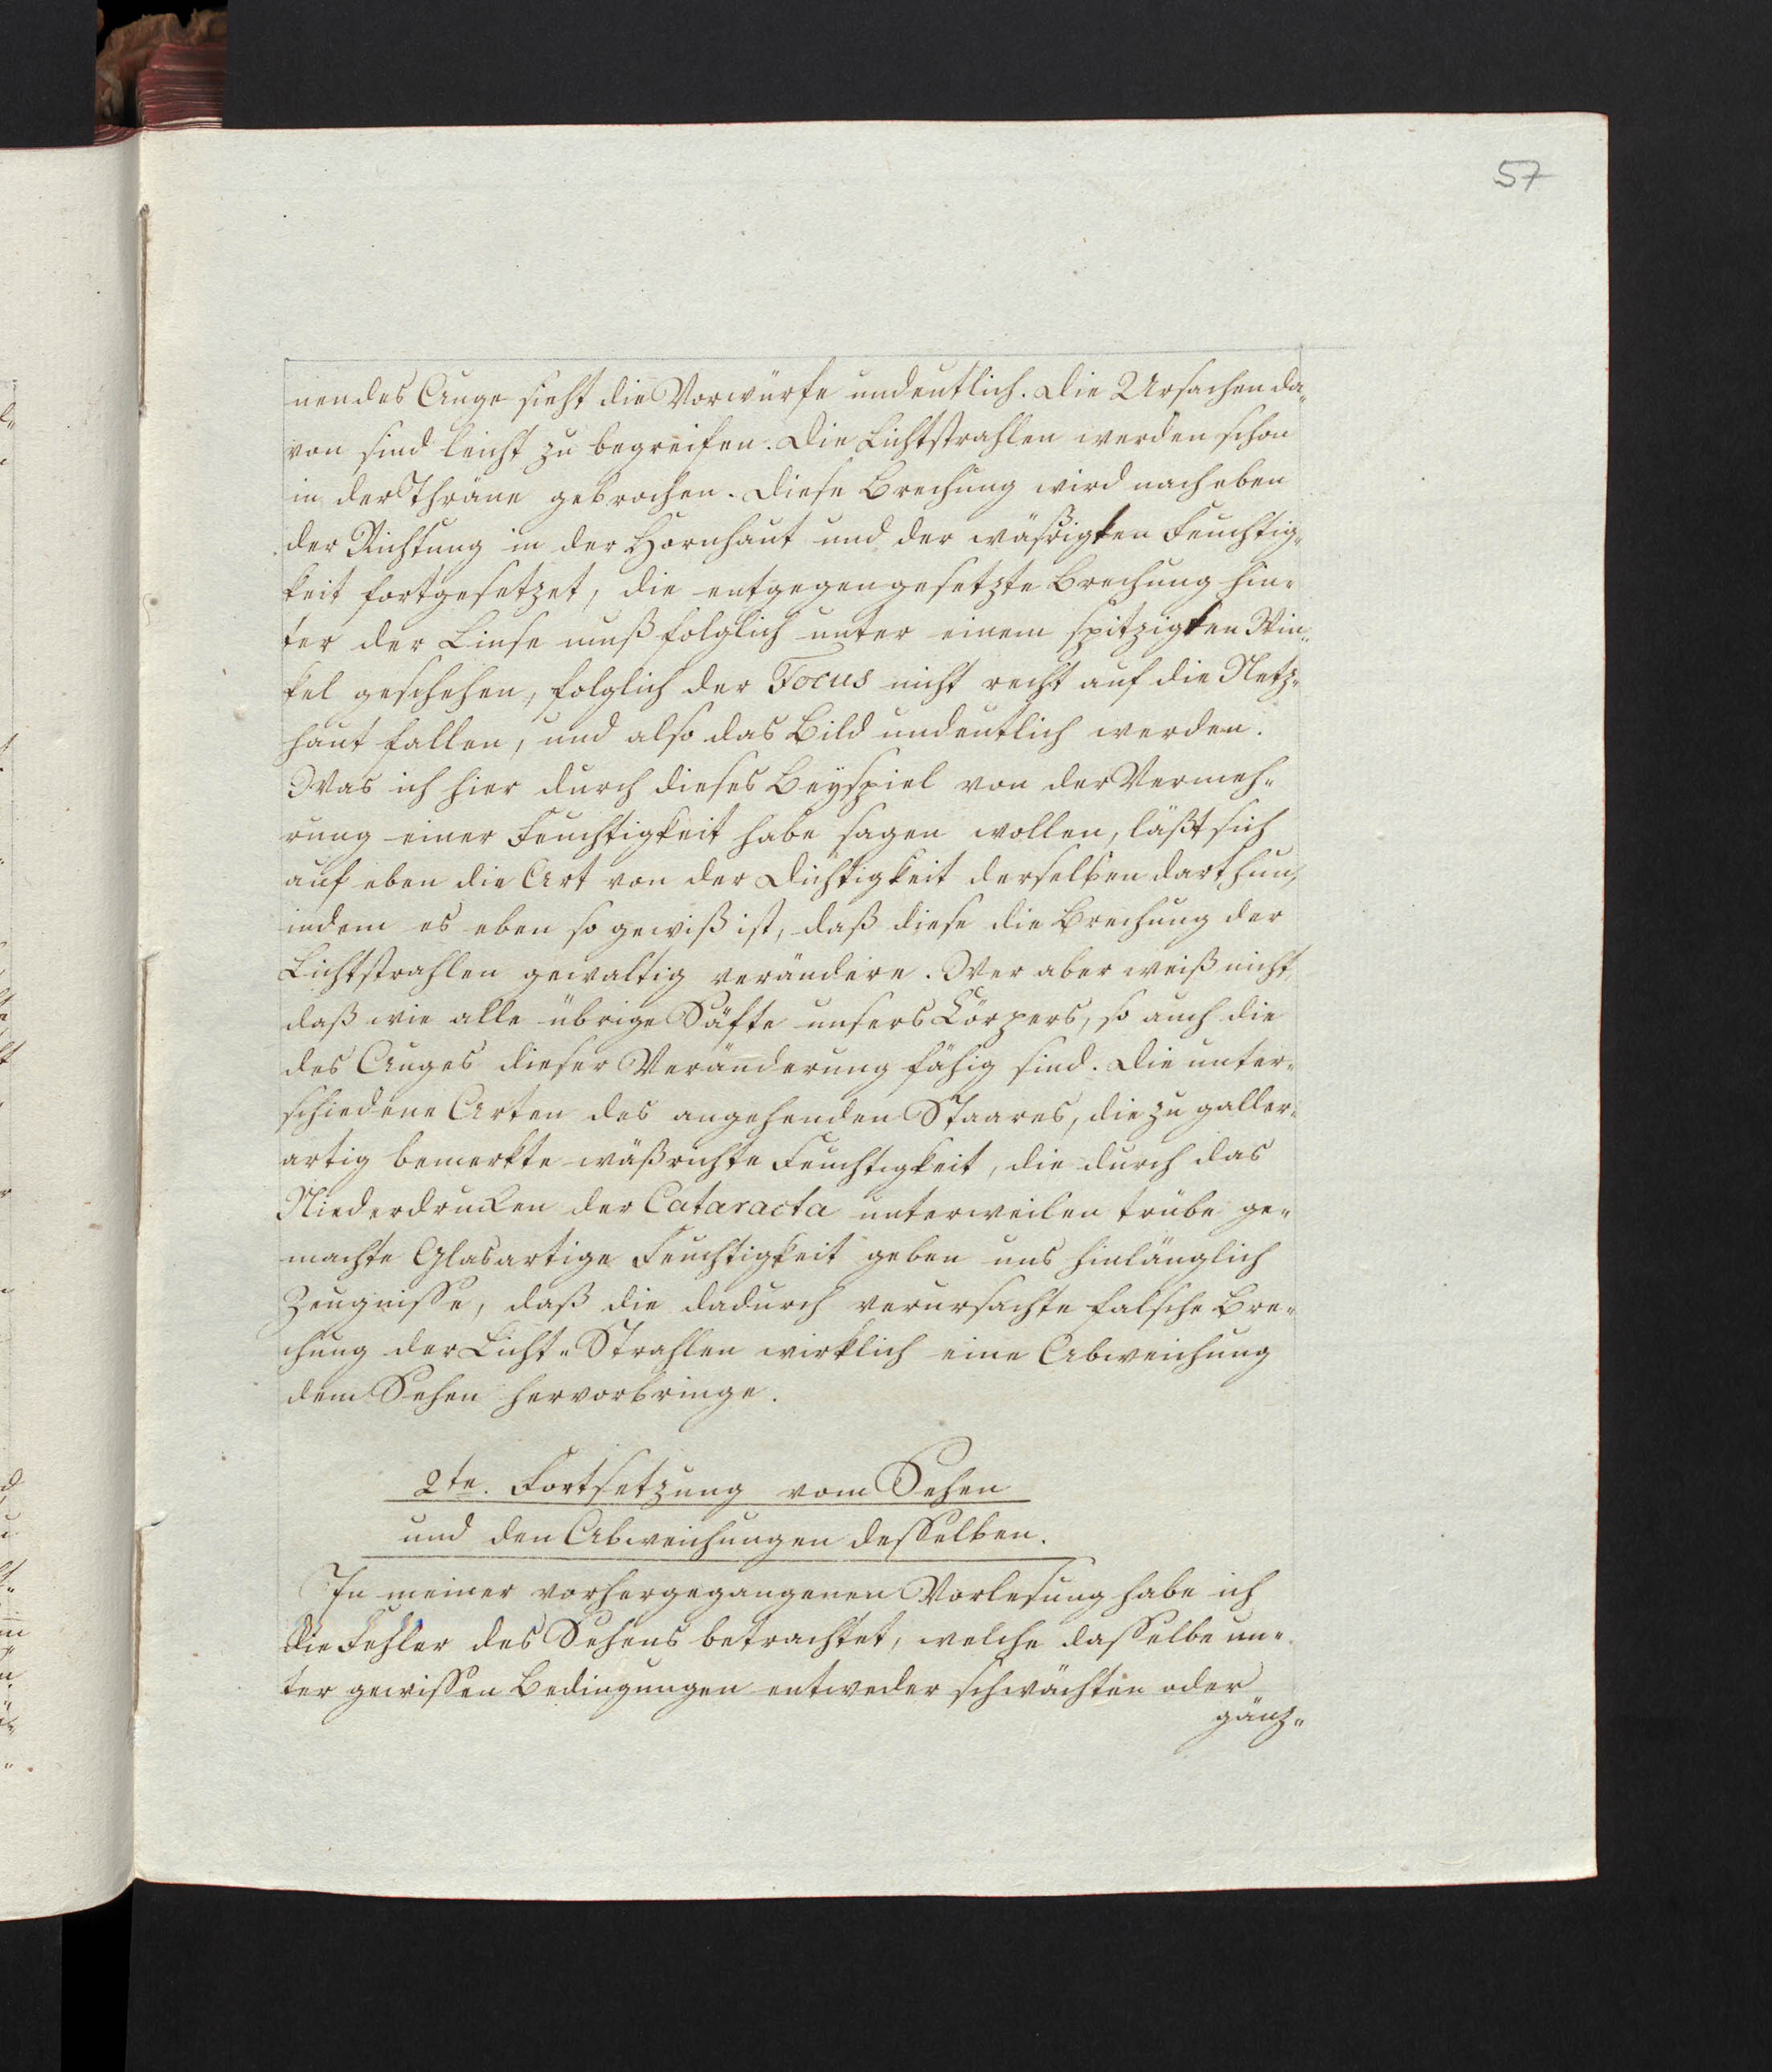 57
nendes Auge sieht die Vorwürfe undeutlich. Die Ursachen da-
von sind leicht zu begreifen. Die Lichtstrahlen werden schon
in der Thräne gebrochen. Diese Brechung wird nach eben
der Richtung in der Hornhaut und der wäßrigten Feuchtig-
keit fortgesetzet, die entgegengesetzte Brechung hin-
ter der Linse muß folglich unter einem spitzigten Win-
kel geschehen, folglich der Focus nicht recht auf die Netz-
haut fallen, und also das Bild undeutlich werden.
Was ich hier durch dieses Beyspiel von der Vermeh-
rung einer Feuchtigkeit habe sagen wollen, läßt sich
auf eben die Art von der Dichtigkeit derselben darthun,
indem es eben so gewiß ist, daß diese die Brechung der
Lichtstrahlen gewaltig verändere. Wer aber weiß nicht,
daß wie alle übrige Säfte unsers Körpers, so auch die
des Auges dieser Veränderung fähig sind. Die unter-
schiedene Arten des angehenden Staares, die zu galler-
artig bemerkte wäßrichte Feuchtigkeit, die durch das
Niederdrucken der Cataracta unterweilen trübe ge-
machte Glasartige Feuchtigkeit geben uns hinlänglich
Zeugnisse, daß die dadurch verursachte falsche Bre-
chung der Licht-Strahlen wirklich eine Abweichung
dem Sehen hervorbringe.
2te. Fortsetzung vom Sehen
und den Abweichungen desselben.
In meiner vorhergegangenen Vorlesung habe ich
die Fehler des Sehens betrachtet, welche dasselbe un-
ter gewissen Bedingungen entweder schwächten oder
gänz-